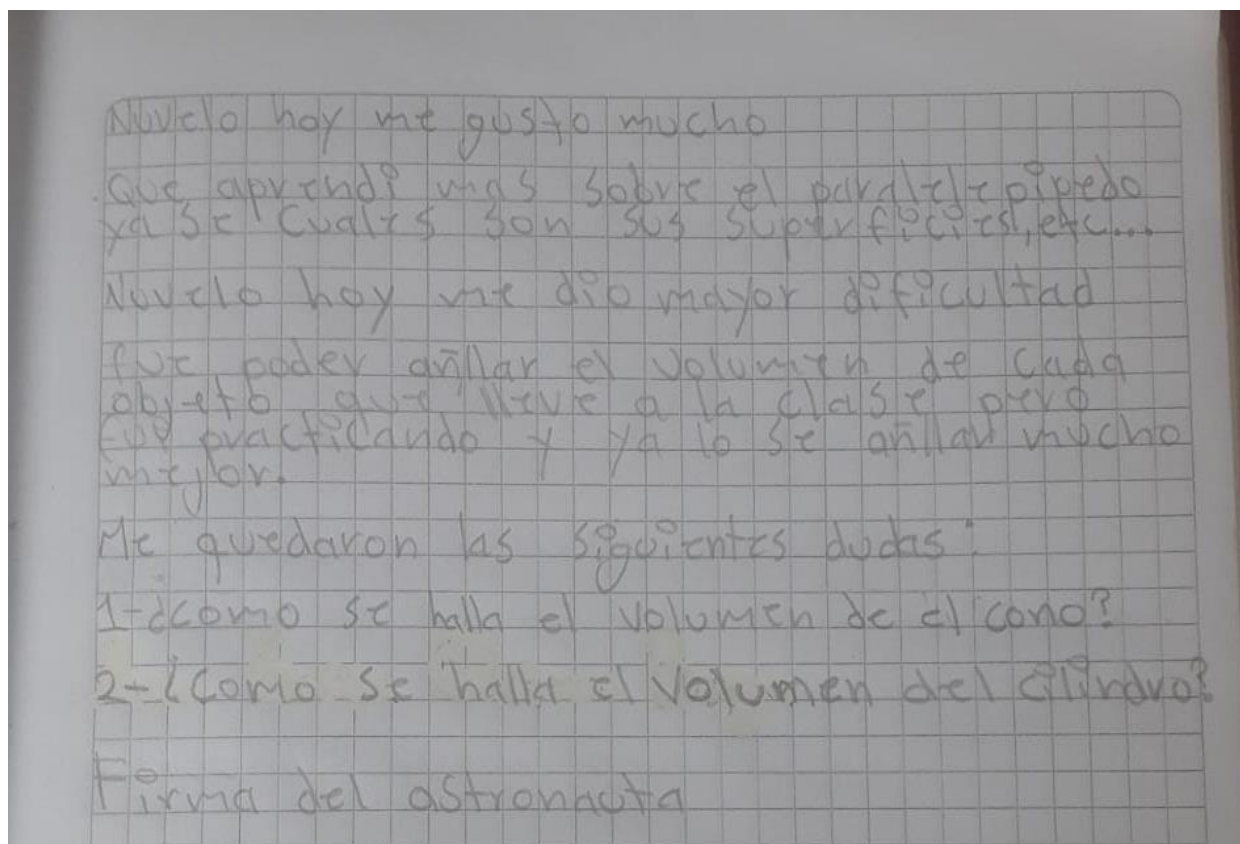 Nuvelo hoy me gusto mucho
Que aprendi mas sobre el paralelepipedo
ya se cuales son sus superficies, etc...
Nuvelo hoy me dio mayor dificultad
fue poder añllar el volumen de cada
objeto que lleve a la clase pero
fui practicando y ya lo se añllar mucho
mejor.
Me quedaron las siguientes dudas:
1-¿como se halla el volumen de el cono?
2-¿Como se halla el Volumen del cilindro?
Firma del astronauta